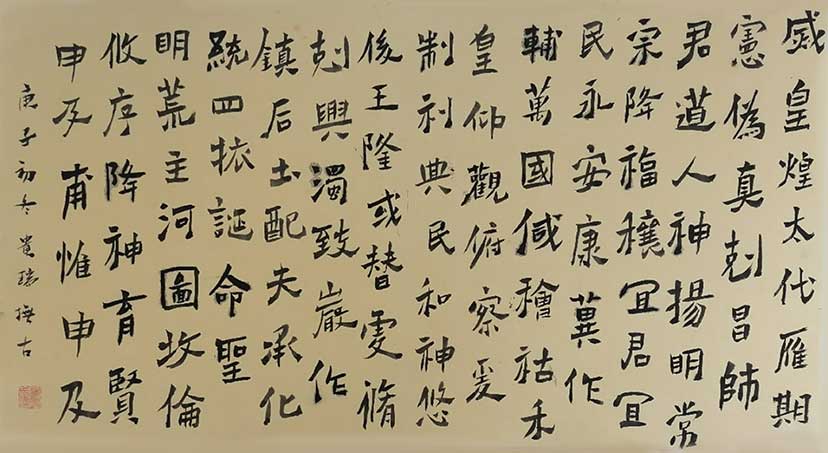 皇煌太代雁期
憲偽真剋昌師
君道人神揚明常
宗降福穰宜君宜
民永安康冀作
輔萬國禬祜禾
皇仰觀俯察爰
制利典民和神悠
後王隆或替脩
剋興濁致巖作
鎮后土配夫承化
統四誕命聖
明荒主河圖收倫
攸序降神育賢
申及甫惟申及
庚子初冬貴撫古